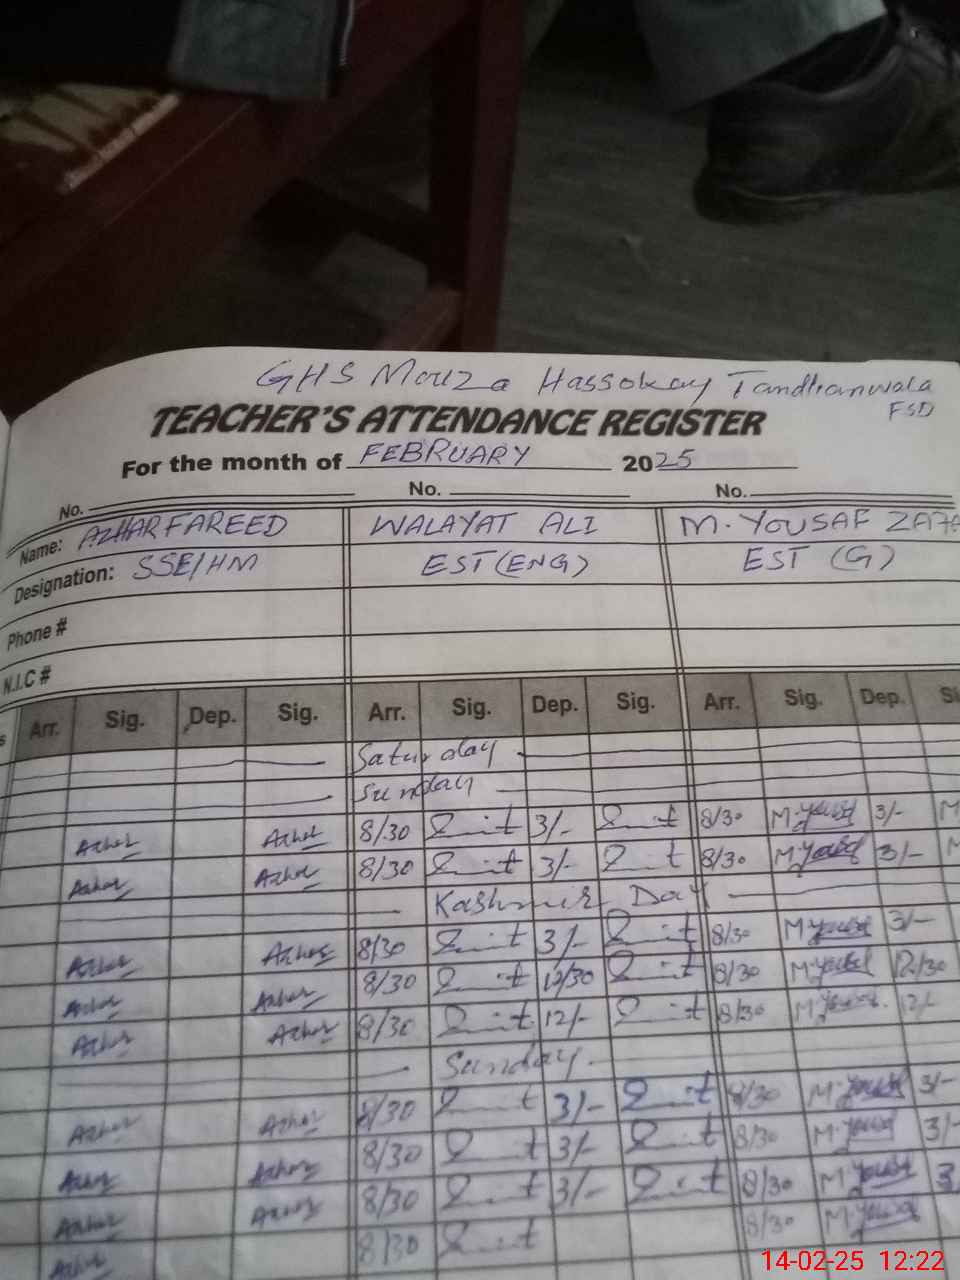 GHS Mouza Hassokay Tandlianwala
FSD
TEACHER'S ATTENDANCE REGISTER
For the month of FEBRUARY 2025
No. No. No.
Name: AZHAR FAREED WALAYAT ALI M. YOUSAF
Designation: SSE/HM EST (ENG) EST (G)
Phone #
N.I.C #
Arr. Sig. Dep. Sig. Arr. Sig. Dep. Sig. Arr. Sig. Dep.
Saturday
Sunday
Azhar Azhar 8/30 3/- 8/30 M. Yousaf 3/- M
Azhar Azhar 8/30 3/- 8/30 M. Yousaf 3/- M
Kashmir Day
Azhar Azhar 8/30 3/- 8/30 M. Yousaf 3/-
Azhar Azhar 8/30 12/30 8/30 M. Yousaf 12/30
Azhar Azhar 8/30 12/- 8/30 M. Yousaf 12/-
Sunday
Azhar Azhar 8/30 3/- 8/30 M. Yousaf 3/-
Azhar Azhar 8/30 3/- 8/30 M. Yousaf 3/-
Azhar Azhar 8/30 3/- 8/30 M. Yousaf 3
Azhar 8/30 8/30 M. Yousaf
14-02-25 12:22